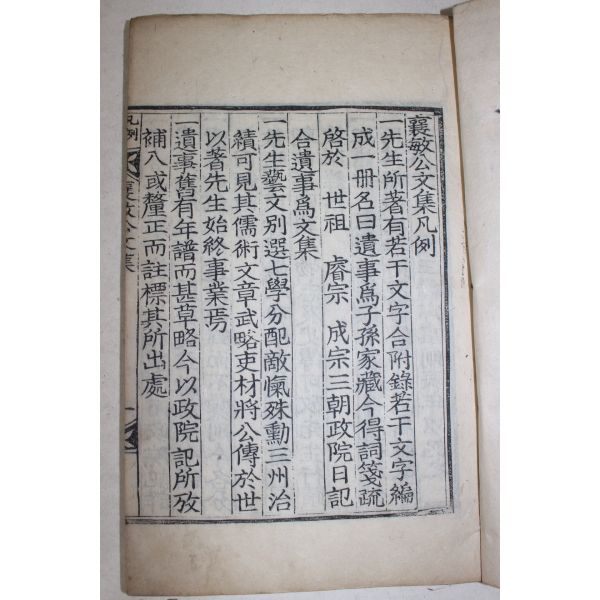 襄敏公文集凡例
一先生所著有若干文字合附錄若干文字編
成一册名曰遺事爲子孫家藏今得詞箋疏
啓於 世祖 睿宗 成宗三朝政院日記
合遺事爲文集
一先生藝文別選七學分配敵愾殊勳三州治
績可見其儒術文章武略吏材將公傳於世
以著先生始終事業焉
一遺事舊有年譜而甚草略今以政院記所攷
補入或釐正而註標其所出處
凡例
襄敏公文集
一